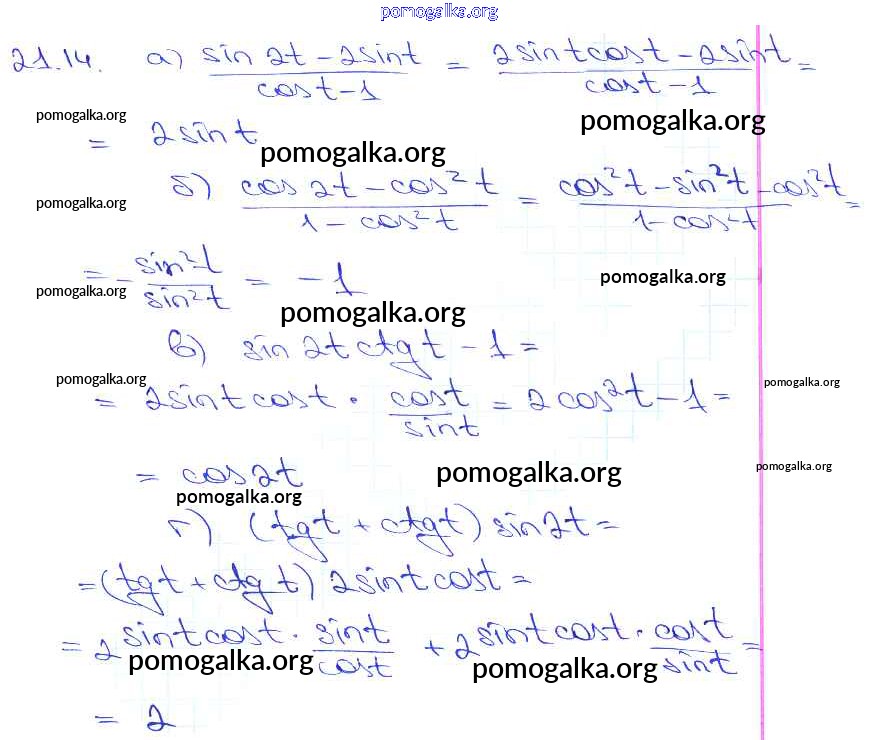 pomogalka.org
21.14. а) (sin 2t - 2sint)/(cost - 1) = (2sintcost - 2sint)/(cost - 1) =
pomogalka.org pomogalka.org
= 2sint
pomogalka.org
б) (cos 2t - cos²t)/(1 - cos²t) = (cos²t - sin²t - cos²t)/(1 - cos²t) =
pomogalka.org
= - sin²t/sin²t = -1
pomogalka.org pomogalka.org
pomogalka.org
в) sin 2t ctg t - 1 =
pomogalka.org pomogalka.org
= 2sint cost · cost/sint = 2cos²t - 1 =
pomogalka.org
= cos2t
pomogalka.org
pomogalka.org
г) (tgt + ctgt) sin2t =
= (tgt + ctgt) 2sintcost =
= 2 sintcost · sint/cost + 2 sintcost · cost/sint =
pomogalka.org pomogalka.org
= 2